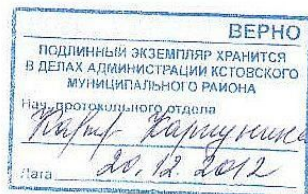 ВЕРНО
ПОДЛИННЫЙ ЭКЗЕМПЛЯР ХРАНИТСЯ
В ДЕЛАХ АДМИНИСТРАЦИИ КСТОВСКОГО
МУНИЦИПАЛЬНОГО РАЙОНА
Нач. протокольного отдела
Дата 20.12.2012